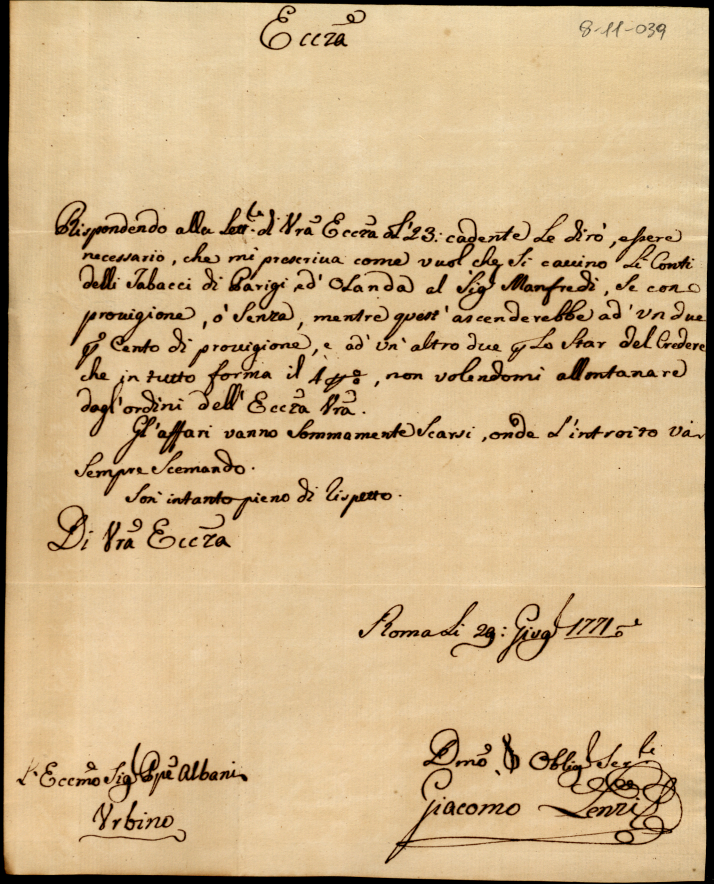 8-11-039
Eccza
Rispondendo alla Lett.ra di Vra Eccza de' 23: cadente Le dirò, essere
necessario, che mi prescriva come vuol che si cavino Li Conti
delli Tabacci di Parigi, ed' Olanda al Sig.r Manfredi, se con
provigione, ò Senza, mentre quest' ascenderebbe ad' un due
p Cento di provigione, e ad' un' altro due p Lo Star del Credere
che in tutto forma il 4 p%, non volendomi allontanare
dagl'ordini dell' Eccza Vra.
Gl'affari vanno Sommamente Scarsi, onde L'introito và
Sempre Scemando.
Son intanto pieno di rispetto.
Di Vra Eccza
Roma Li 29: Giug 1771
Eccmo Sig Ppe Albani
Urbino
Dmo Oblig Ser
Giacomo Lenzi